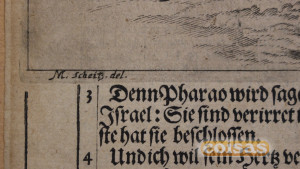 M. Scheitz. del.
3 Denn Pharao wird sage
Israel: Sie sind verirret i
ste hat sie beschlossen.
4 Und ich wil sein Hertz ve
coisas